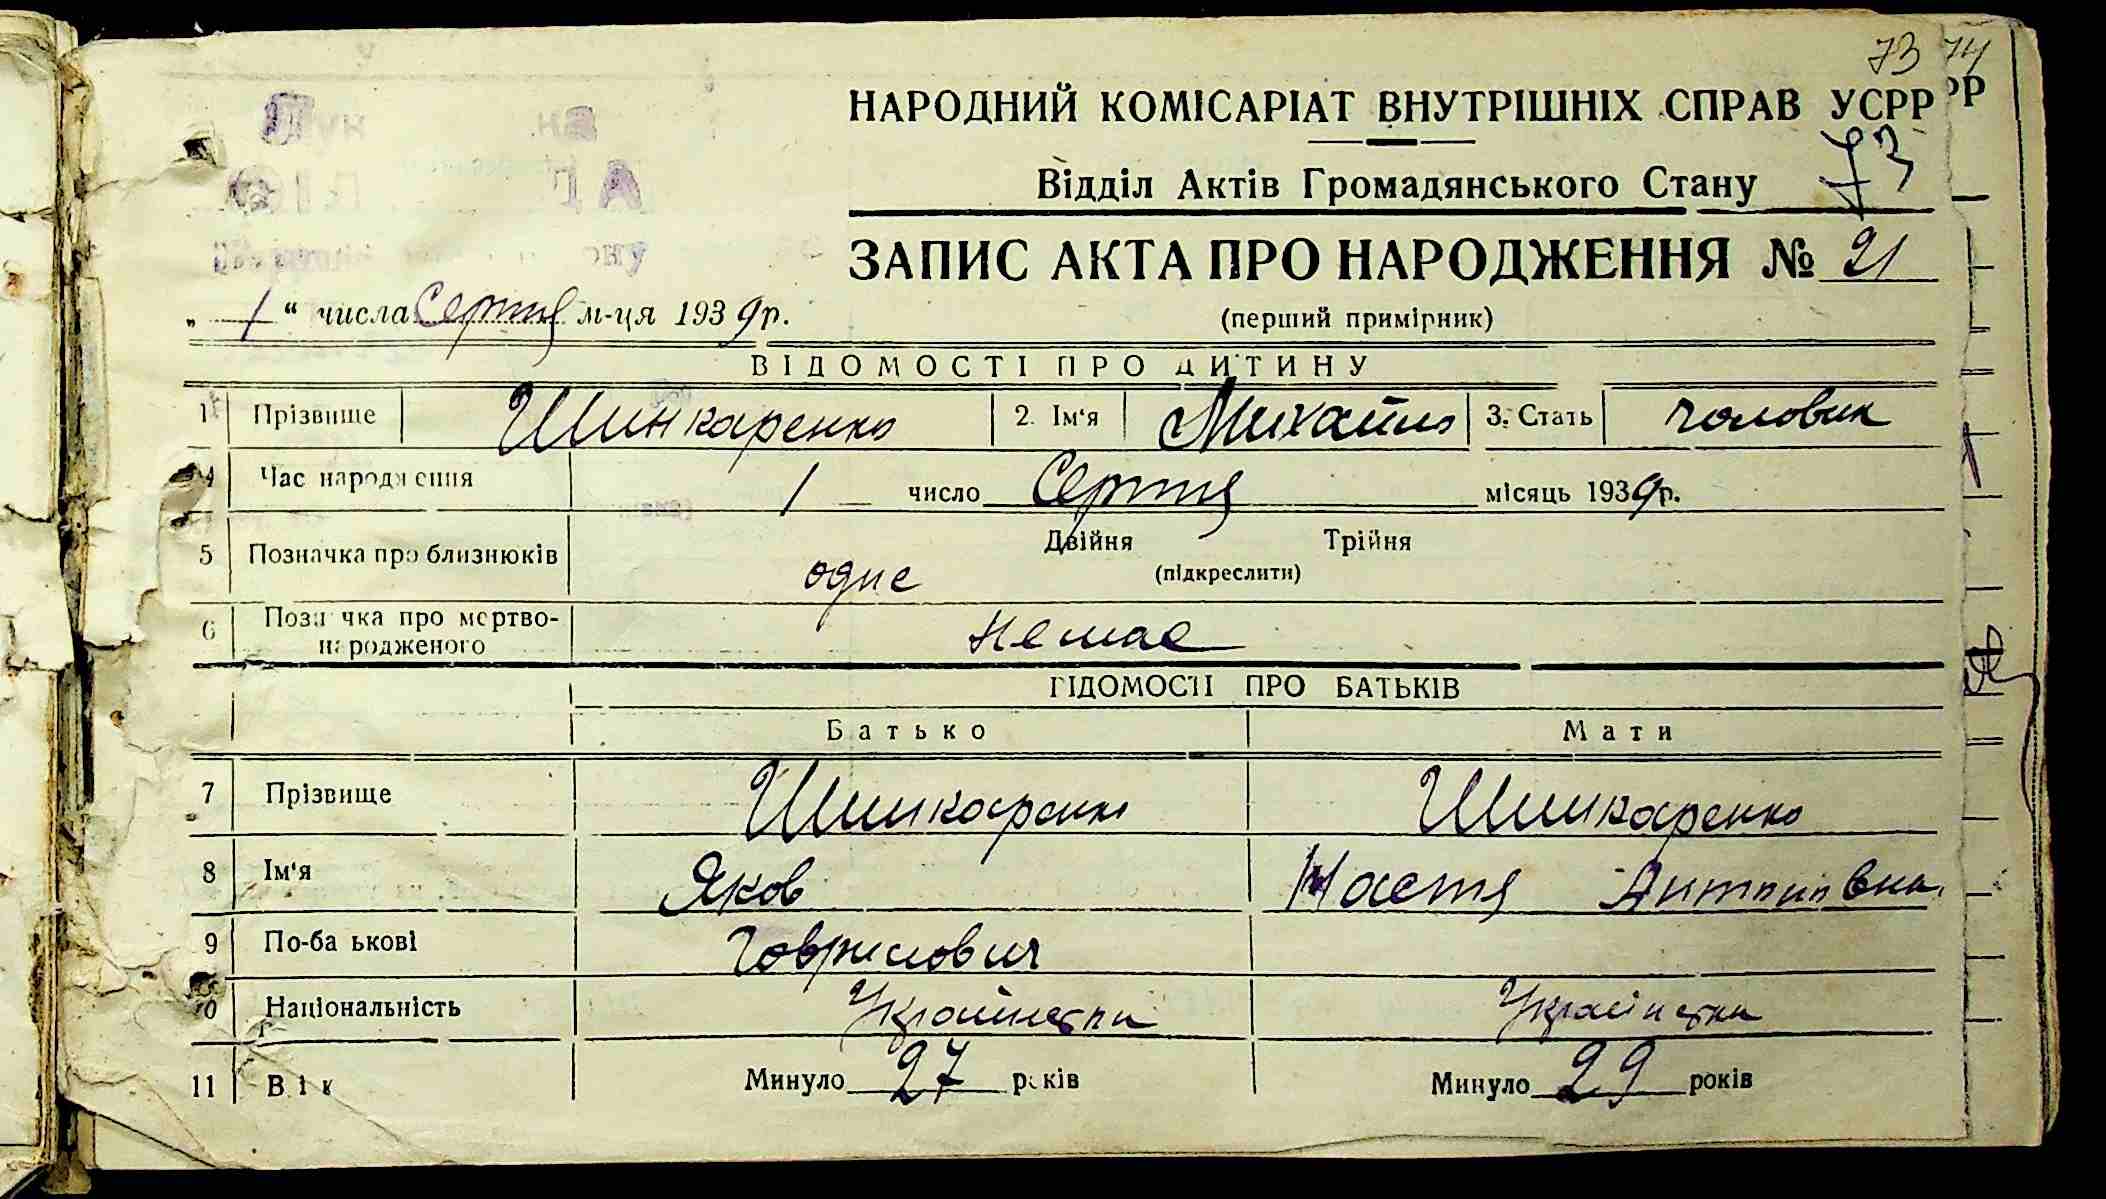 73 74
НАРОДНИЙ КОМІСАРІАТ ВНУТРІШНІХ СПРАВ УСРР РР
Відділ Актів Громадянського Стану 73
ЗАПИС АКТА ПРО НАРОДЖЕННЯ № 21
„ 1 “ числа Серпня м-ця 1939 р.
(перший примірник)
ВІДОМОСТІ ПРО ДИТИНУ
1 Прізвище Шинкаренко 2. Ім‘я Михайло 3. Стать чоловик
4 Час народження 1 число Серпня місяць 1939 р.
5 Позначка про близнюків одне Двійня Трійня
(підкреслити)
6 Позначка про мертво-
народженого немає
ВІДОМОСТІ ПРО БАТЬКІВ
Батько Мати
7 Прізвище Шинкаренко Шинкаренко
8 Ім‘я Яков Настя Антонівна
9 По-ба ькові Гаврилович
10 Національність Українець Українка
11 Вік Минуло 27 років Минуло 29 років